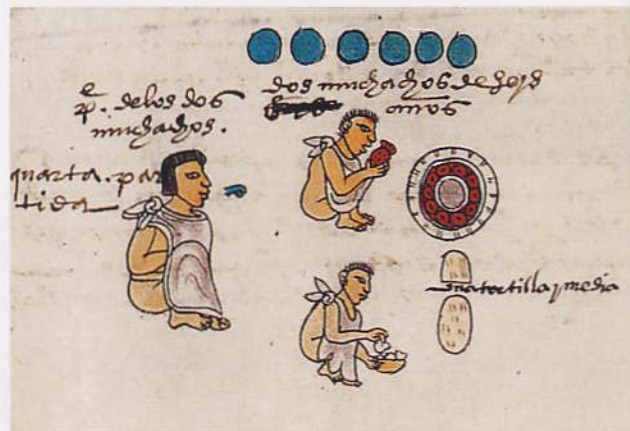 e
p. delos dos
muchachos.
dos muchachos de seys
años
quarta. par
tida
una tortilla y media